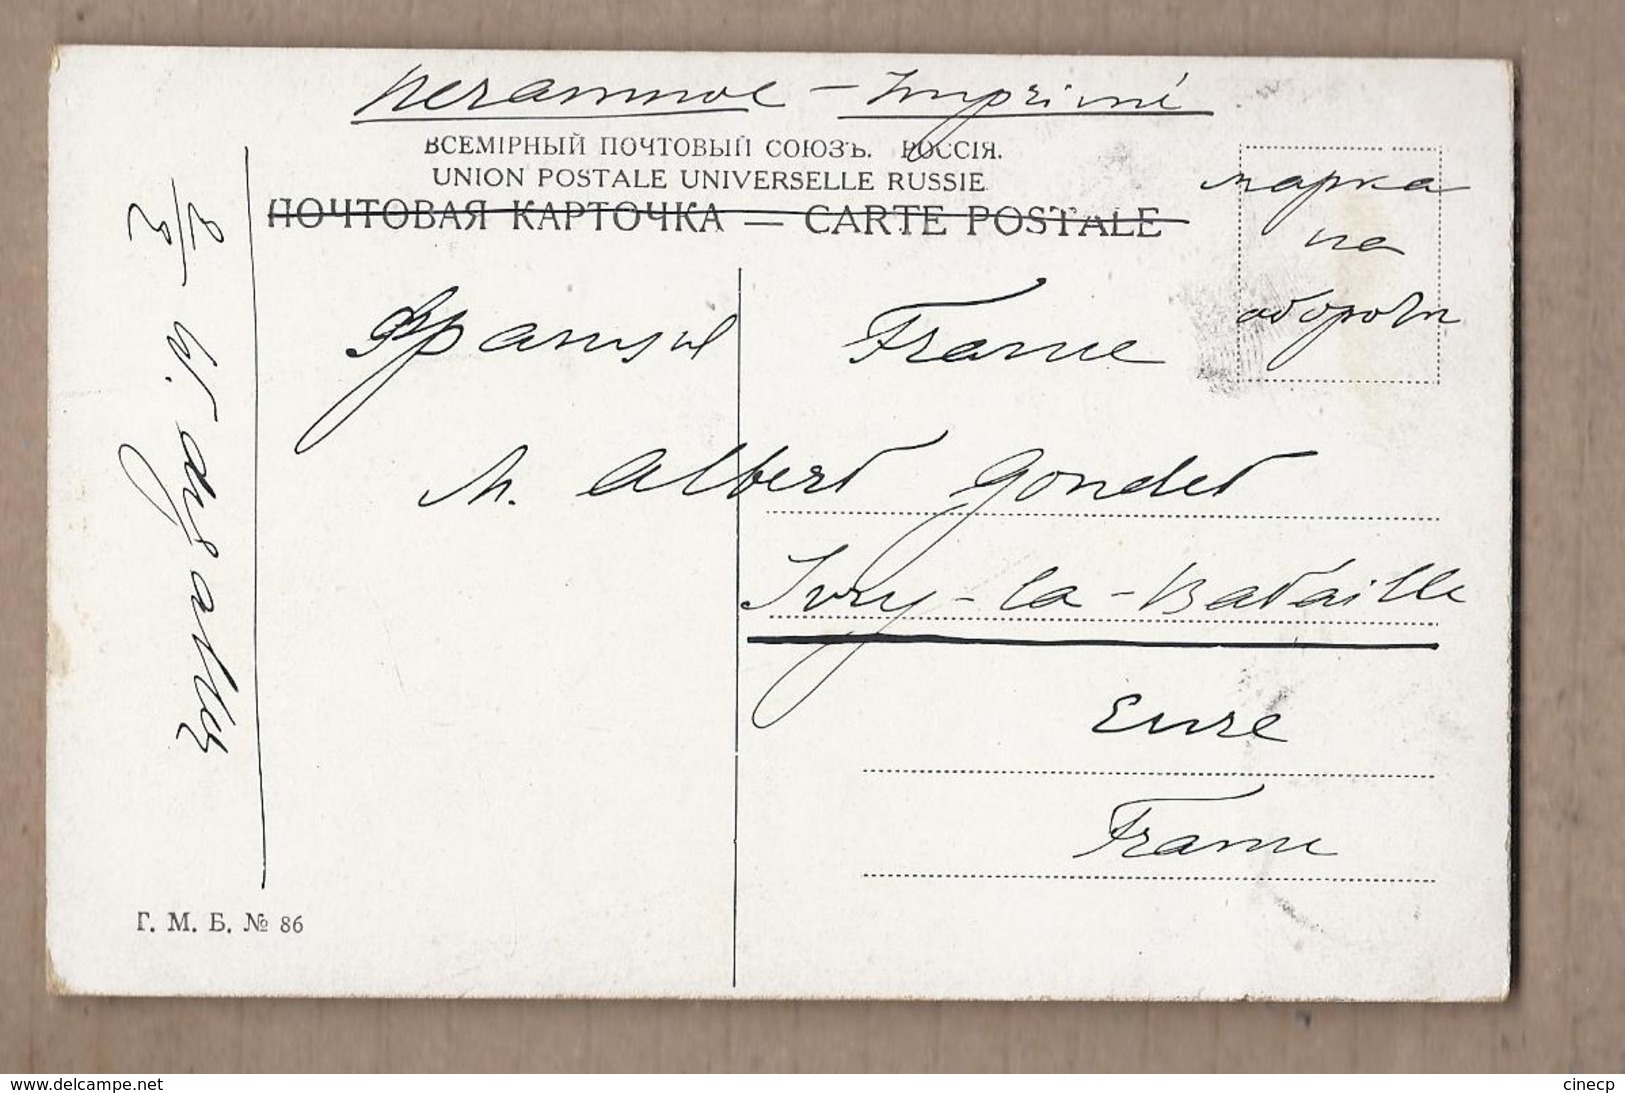 печатное – Imprimé
ВСЕМІРНЫЙ ПОЧТОВЫЙ СОЮЗЪ. РОССІЯ.
UNION POSTALE UNIVERSELLE RUSSIE
ПОЧТОВАЯ КАРТОЧКА — CARTE POSTALE
марка
на
обороте
Франция France
M. Albert Gondet
Ivry-la-Bataille
Eure
France
Г. М. Б. № 86
www.delcampe.net
cinecp